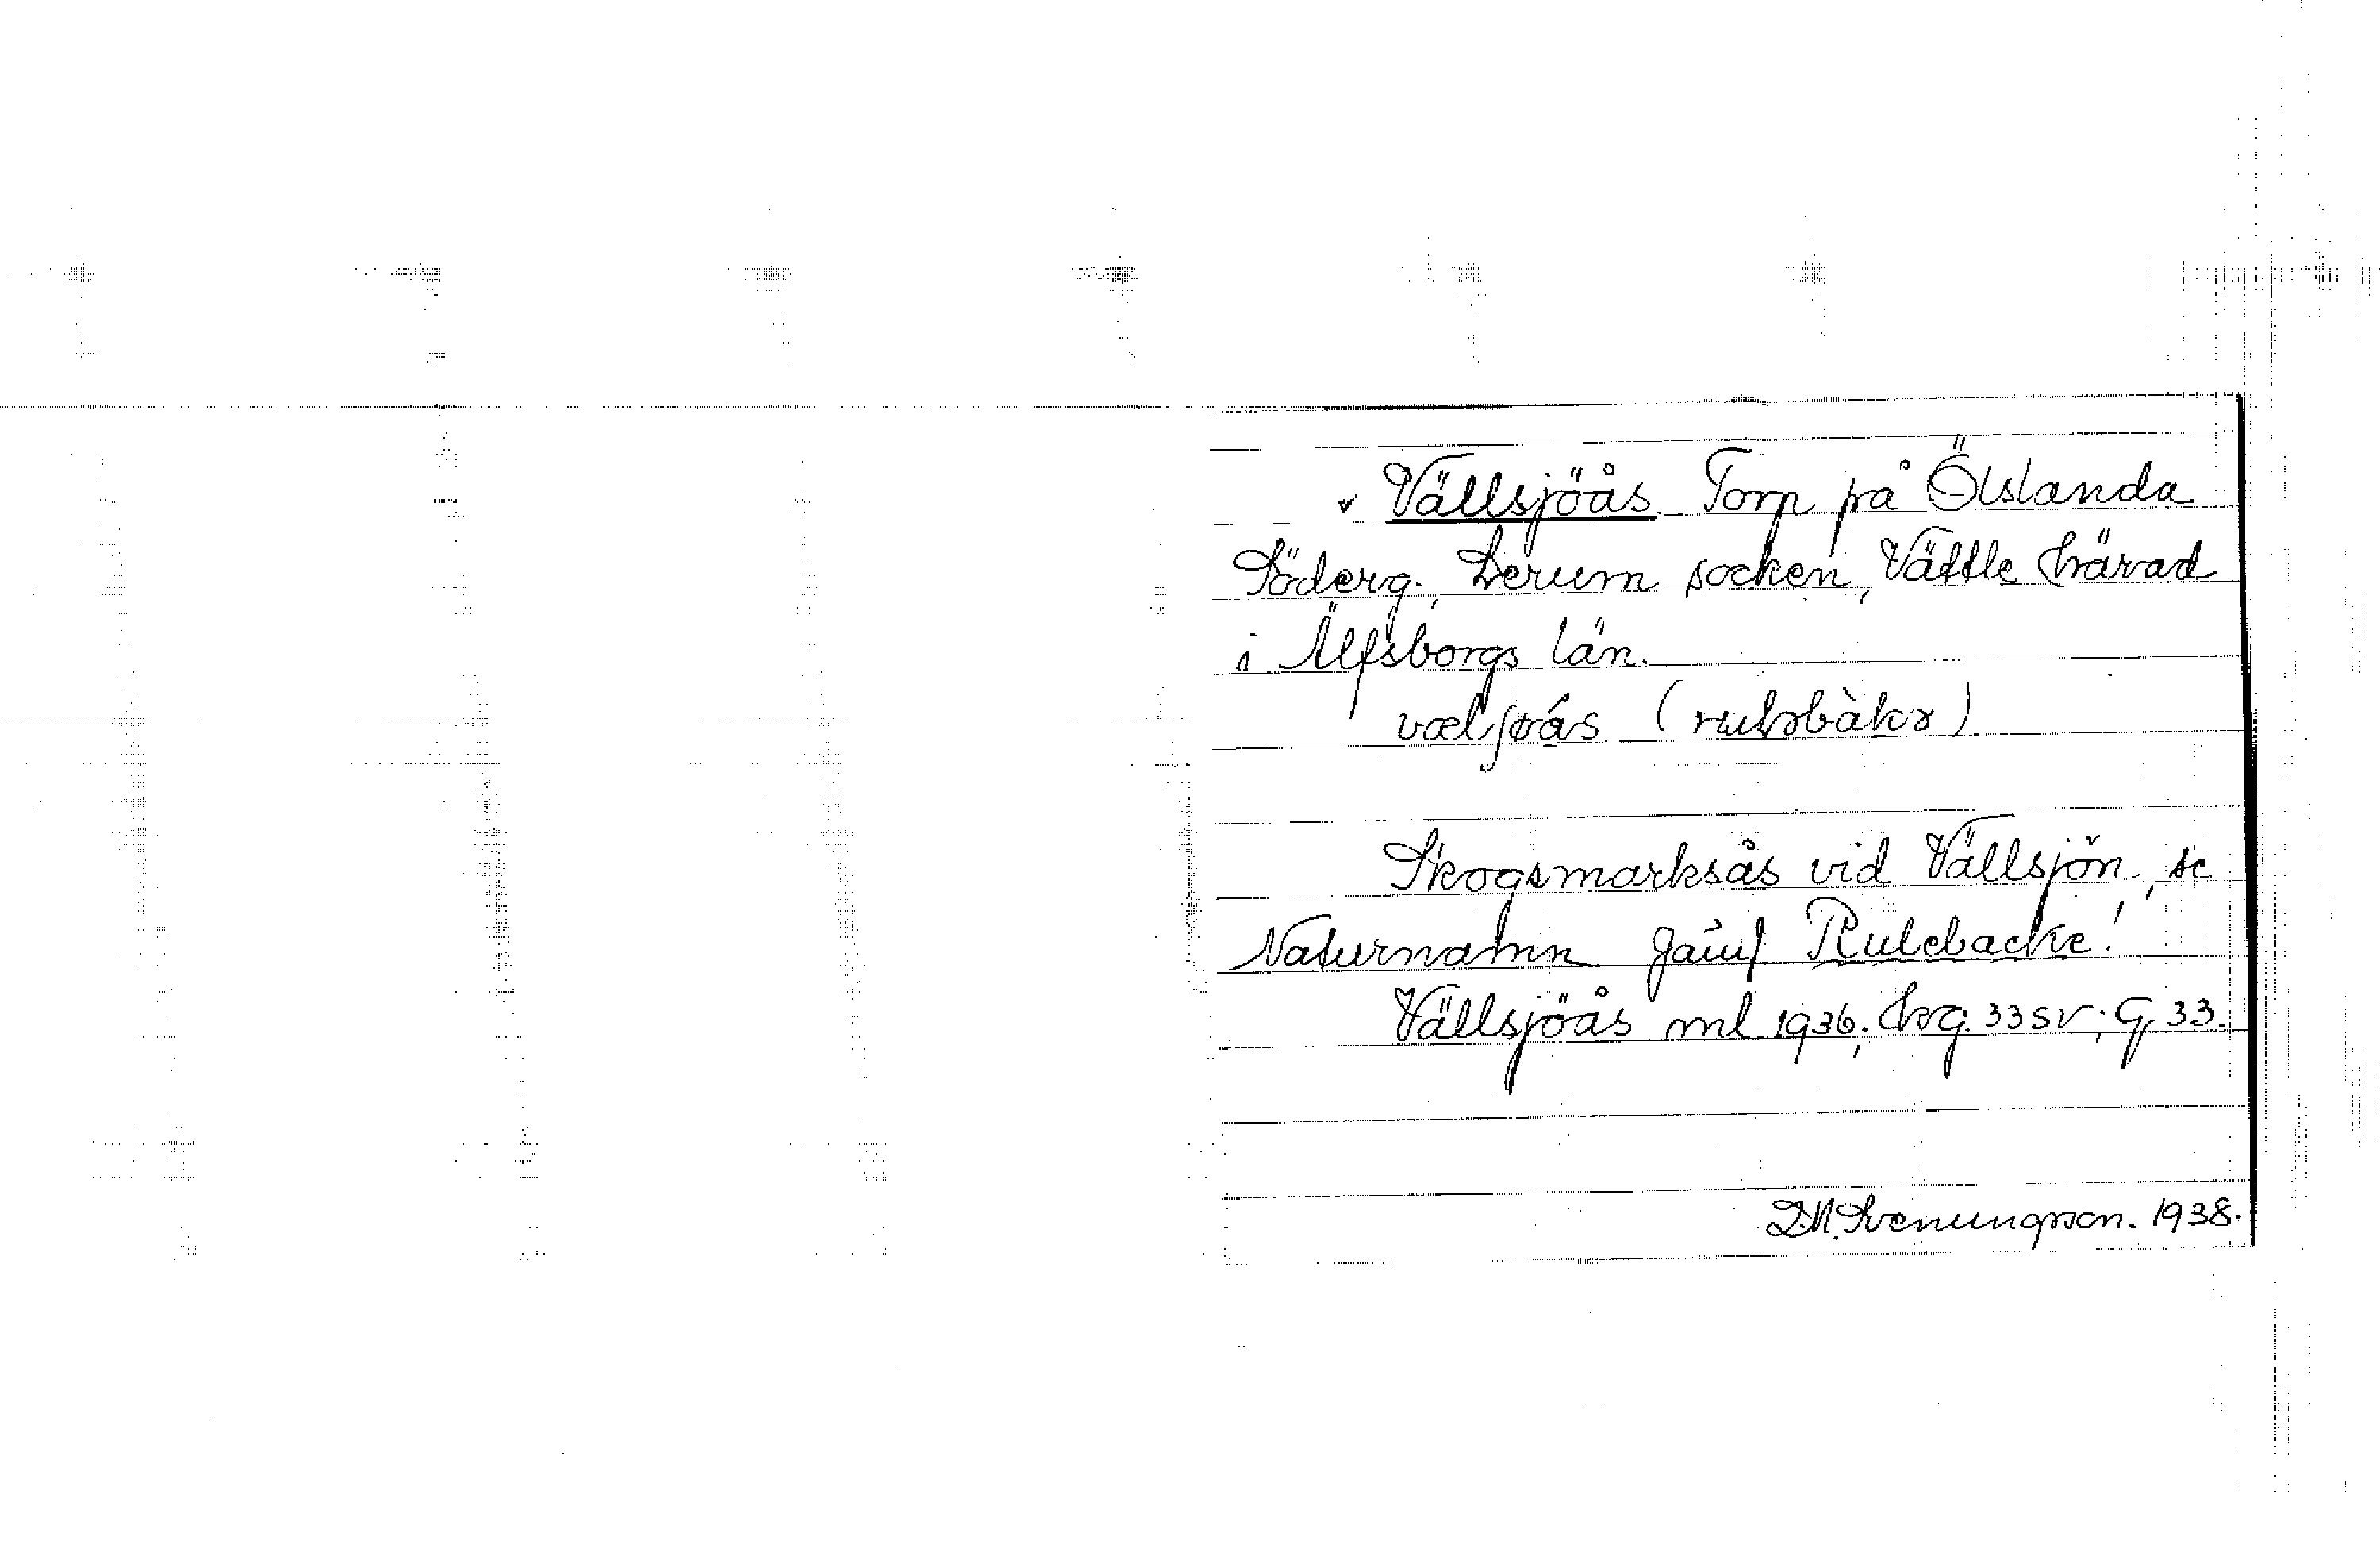 v Vällsjöås. Torp på Ölslanda
Söderg., Lerum socken, Vättle härad
i Älfsborgs län.
vælʃøås (rulɘbàkɘ)
Skogsmarksås vid Vällsjön, se
Naturnamn jämf Rulebacke!
Vällsjöås ml 1936; Hvg. 33 SV; G, 33.
D.M. Svenungsson. 1938.